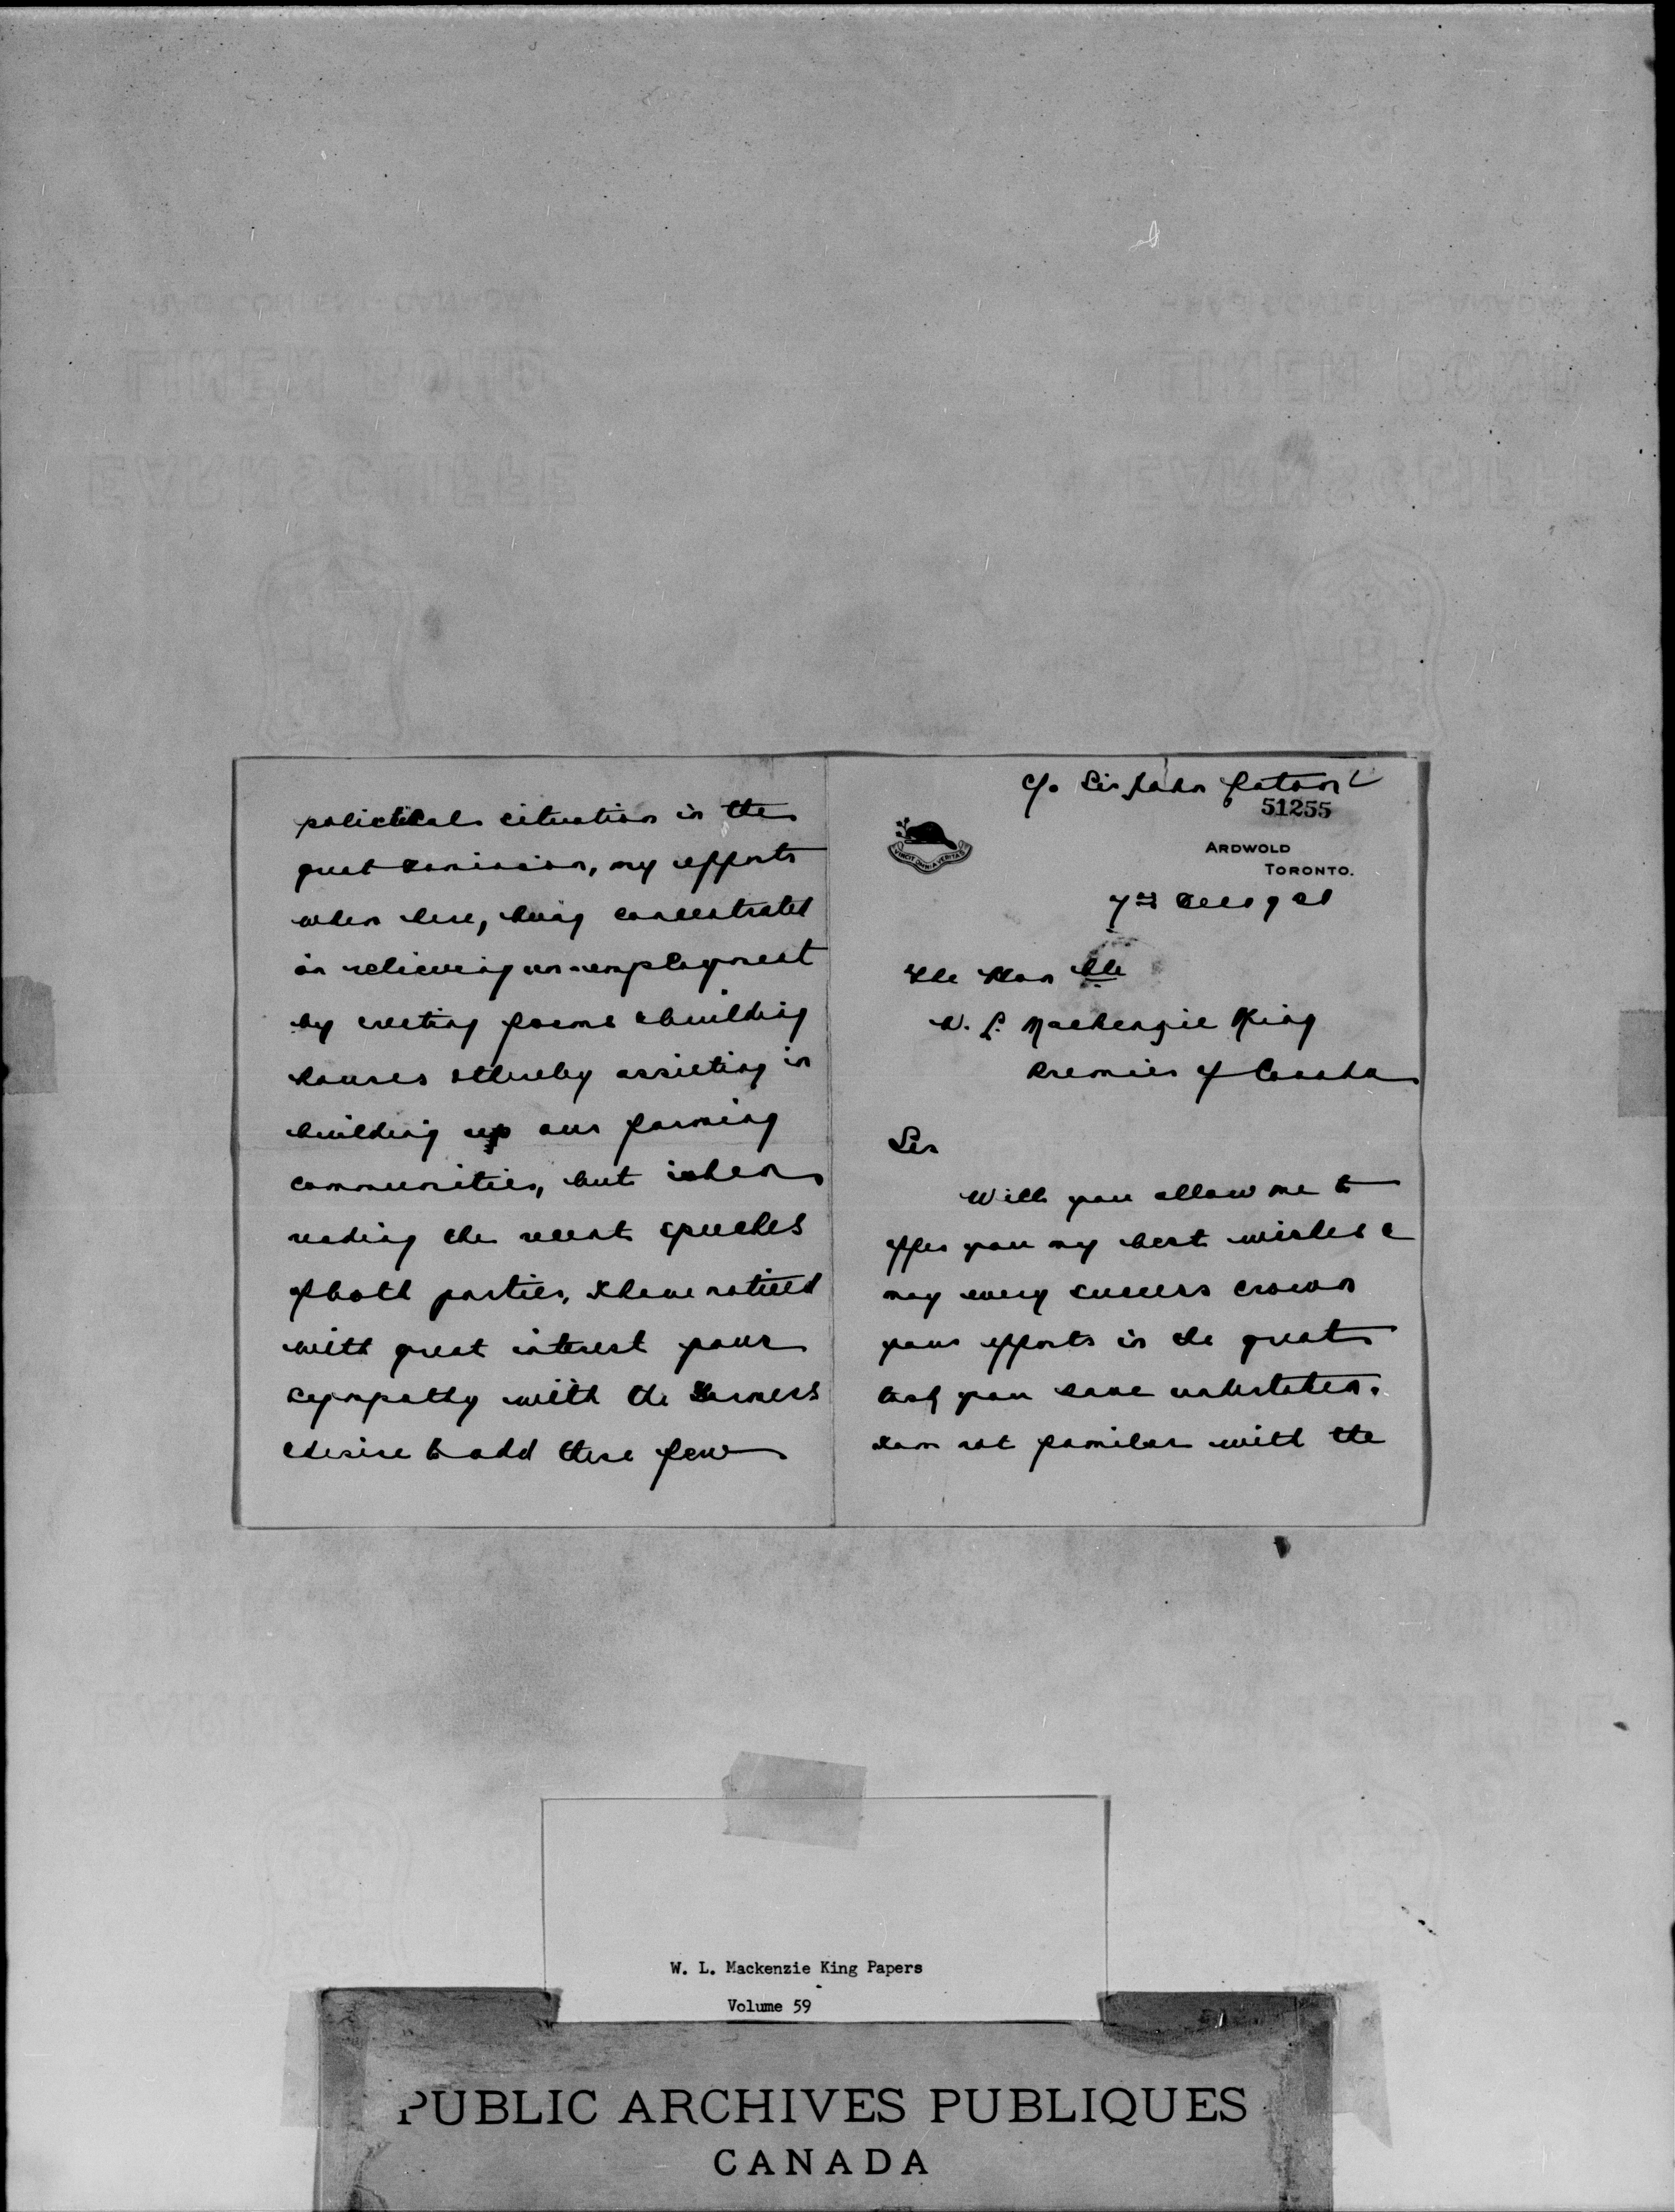 c/o Sir John Eaton
51255
VINCIT OMNIA VERITAS
ARDWOLD
TORONTO.
7th Dec 1921
The Hon ble
W. L. Mackenzie King
Premier of Canada
Sir
Will you allow me to
offer you my best wishes &
may every success crown
your efforts in the great
task you have undertaken.
I am not familar with the
politikal situation in the
great Dominion, my efforts
when here, being concentrated
on relieving un-employment
by creating farms & building
houses & thereby assisting in
building up our farming
communities, but when
reading the recent speeches
of both parties, I have noticed
with great interest your
sympathy with the farmers
& desire to add these few
W. L. Mackenzie King Papers
Volume 59
PUBLIC ARCHIVES PUBLIQUES
CANADA